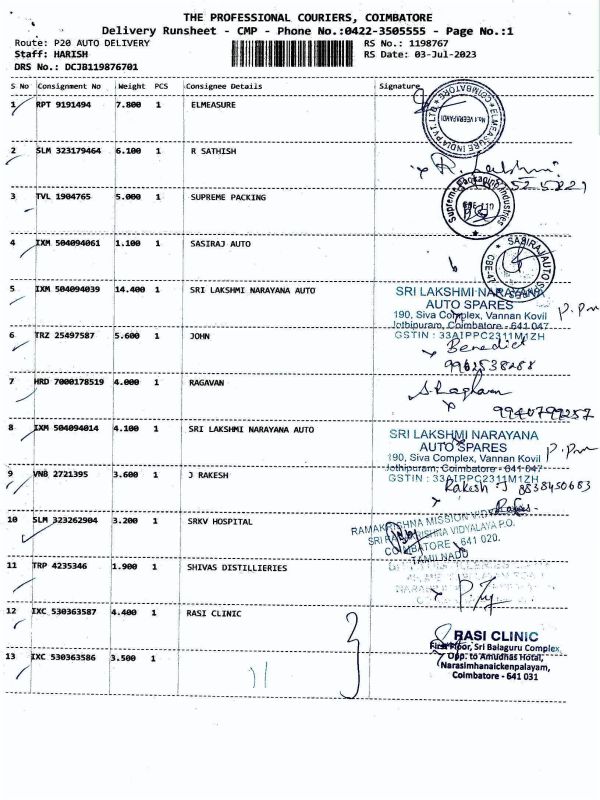 THE PROFESSIONAL COURIERS, COIMBATORE
Delivery Runsheet - CMP - Phone No.:0422-3505555 - Page No.:1
Route: P20 AUTO DELIVERY
RS No.: 1198767
Staff: HARISH
RS Date: 03-Jul-2023
DRS No.: DCJB119876701
S No Consignment No Weight PCS Consignee Details Signature
1 RPT 9191494 7.800 1 ELMEASURE
ELMEASURE INDIA PVT. LTD. COIMBATORE
2 SLM 323179464 6.100 1 R SATHISH
3 TVL 1904765 5.000 1 SUPREME PACKING
Supreme Packaging Industries
4 IXM 504094061 1.100 1 SASIRAJ AUTO
SASIRAJ AUTO
5 IXM 504094039 14.400 1 SRI LAKSHMI NARAYANA AUTO
SRI LAKSHMI NARAYANA
AUTO SPARES
190, Siva Complex, Vannan Kovil
Jothipuram, Coimbatore - 641 047
GSTIN : 33AIPPC2311M1ZH
6 TRZ 25497587 5.600 1 JOHN
Benedict
9962538288
7 HRD 7000178519 4.000 1 RAGAVAN
S. Raghavan
9940799257
8 IXM 504094014 4.100 1 SRI LAKSHMI NARAYANA AUTO
SRI LAKSHMI NARAYANA
AUTO SPARES
190, Siva Complex, Vannan Kovil
Jothipuram, Coimbatore - 641 047
GSTIN : 33AIPPC2311M1ZH
9 VNB 2721395 3.600 1 J RAKESH
Rakesh J 8838450683
10 SLM 323262904 3.200 1 SRKV HOSPITAL
RAMAKRISHNA MISSION VIDYALAYA
SRI RAMAKRISHNA VIDYALAYA P.O.
COIMBATORE - 641 020.
TAMILNADU
11 TRP 4235346 1.900 1 SHIVAS DISTILLIERIES
12 IXC 530363587 4.400 1 RASI CLINIC
13 IXC 530363586 3.500 1 11
RASI CLINIC
First Floor, Sri Balaguru Complex,
Opp. to Amudhas Hotal,
Narasimhanaickenpalayam,
Coimbatore - 641 031